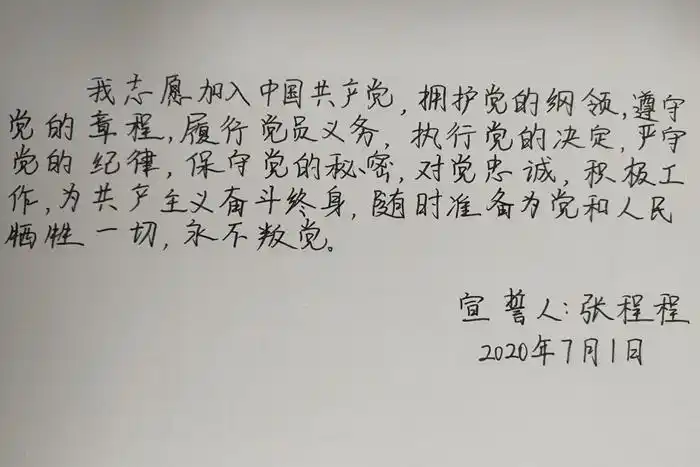 我志愿加入中国共产党，拥护党的纲领，遵守
党的章程，履行党员义务，执行党的决定，严守
党的纪律，保守党的秘密，对党忠诚，积极工
作，为共产主义奋斗终身，随时准备为党和人民
牺牲一切，永不叛党。
宣誓人：张程程
2020年7月1日